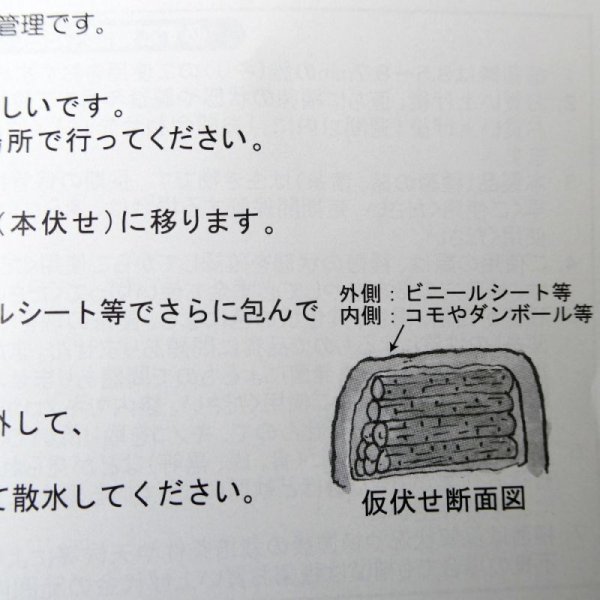 管理です。
しいです。
場所で行ってください。
(本伏せ)に移ります。
ルシート等でさらに包んで
外側：ビニールシート等
内側：コモやダンボール等
外して、
て散水してください。
仮伏せ断面図